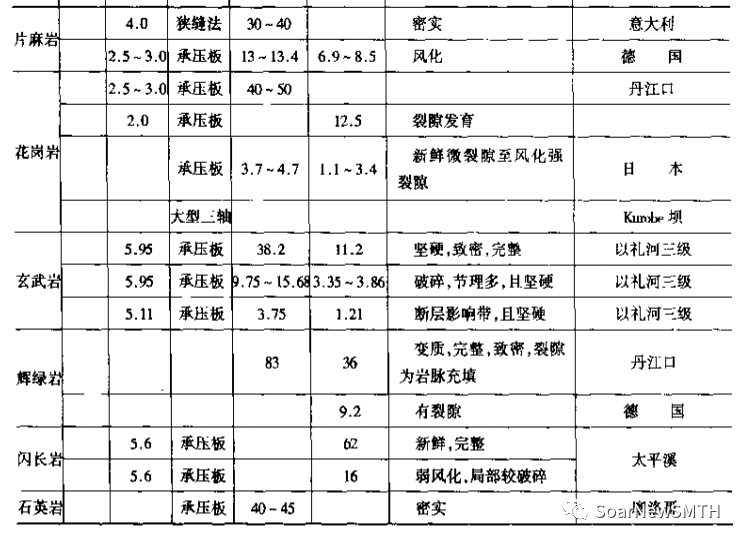 片麻岩 4.0 狭缝法 30~40 密实 意大利
2.5~3.0 承压板 13~13.4 6.9~8.5 风化 德 国
花岗岩 2.5~3.0 承压板 40~50 丹江口
2.0 承压板 12.5 裂隙发育
承压板 3.7~4.7 1.1~3.4 新鲜微裂隙至风化强
裂隙 日 本
大型三轴 Kurobe 坝
玄武岩 5.95 承压板 38.2 11.2 坚硬,致密,完整 以礼河三级
5.95 承压板 9.75~15.68 3.35~3.86 破碎,节理多,且坚硬 以礼河三级
5.11 承压板 3.75 1.21 断层影响带,且坚硬 以礼河三级
辉绿岩 83 36 变质,完整,致密,裂隙
为岩脉充填 丹江口
9.2 有裂隙 德 国
闪长岩 5.6 承压板 62 新鲜,完整 太平溪
5.6 承压板 16 弱风化,局部较破碎
石英岩 承压板 40~45 密实
SoarNewSMTH